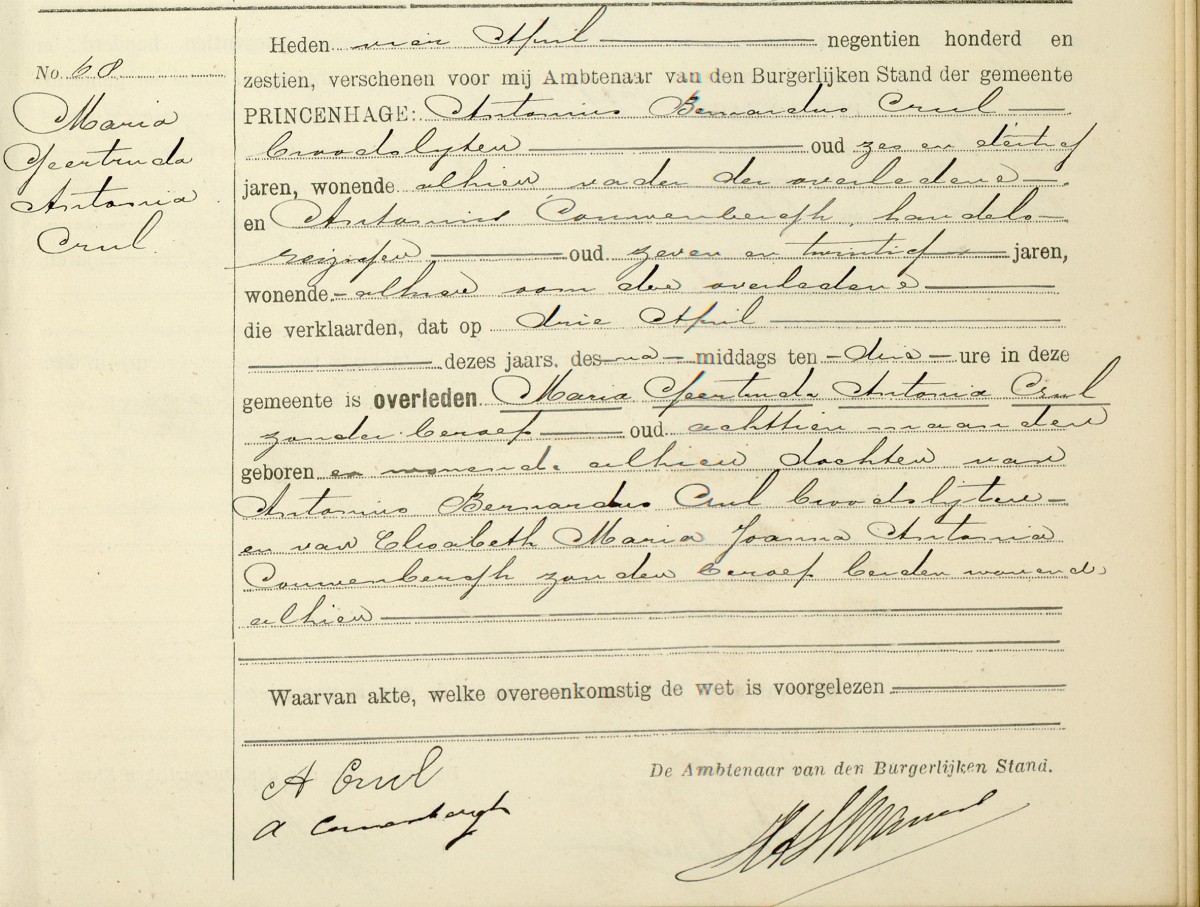 Heden vier April negentien honderd en
No. 68
zestien, verschenen voor mij Ambtenaar van den Burgerlijken Stand der gemeente
Maria
PRINCENHAGE: Antonius Bernardus Crul
Geertruda
broodslijter oud zes en dertig
Antonia
jaren, wonende alhier vader der overledene
Crul
en Antonius Couwenbergh, handels-
reiziger oud zeven en twintig jaren,
wonende alhier oom der overledene
die verklaarden, dat op drie April
dezes jaars, des na middags ten drie ure in deze
gemeente is overleden Maria Geertruda Antonia Crul
zonder beroep oud achttien maanden
geboren en wonende alhier dochter van
Antonius Bernardus Crul broodslijter
en van Elisabeth Maria Joanna Antonia
Couwenbergh zonder beroep beiden wonende
alhier
Waarvan akte, welke overeenkomstig de wet is voorgelezen
De Ambtenaar van den Burgerlijken Stand.
A Crul
A Couwenbergh